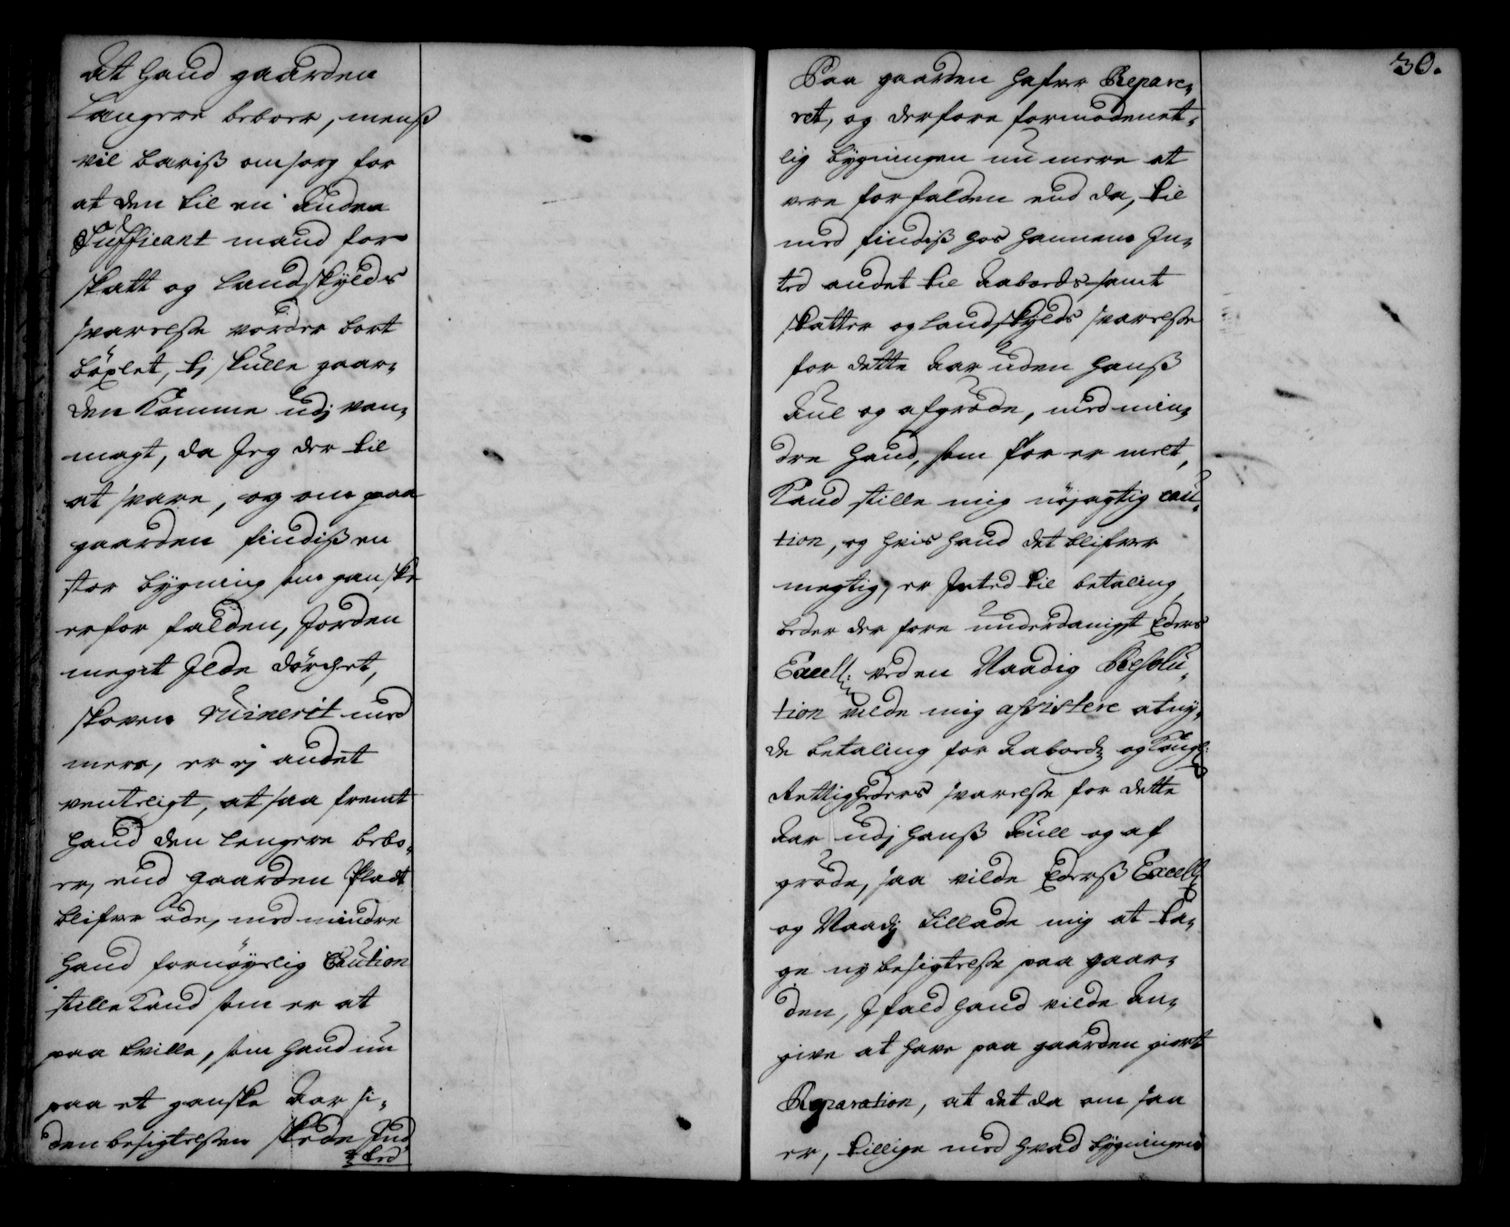 at hand gaarden
Længere beboer, mens
vil bæris omsorg for
at den til en anden
Sufficant mand for
skatt og Landskylds
svarelse vorder bort
böxlet, ej skulle gaar-
den komme udj van-
magt, da Jeg der til
at svare, og om paa
gaarden findis en
stor bygning som ganske
er forfalden, Jorden
meget Ilde dörchet,
skoven Ruinerit med
mere, er ej andet
ventteligt, at saa fremt
hand den lengere bebo-
er, end gaarden Pladt
blifver öde, med mindre
hand fornöyelig Caution
stille Kand som er at
paa tville, som hand nu
paa et ganske Aar si-
den besigtelsen skede Jnd-
ted
30.
Paa gaarden hafver Repare-
ret, og derfore formodenet-
lig bygningen nu mere at
være forfalden end da, til
med findis hos hannem In-
ted andet til Aabords samt
skatter og landskylds svarelse
for dette Aar uden hans
Aul og afgröde, med min-
dre hand, som för er melt,
Kand stille mig nöjagtig Cau-
tion, og hvis hand det blifver
megtig, er Inted til betaling
beder der fore underdanigst Eders
Excell: ved en Naadig Resolu-
tion vilde mig assistere at ny-
de betaling for Aabord og Kongl:
Rettigheders svarelse for dette
Aar udj hans Aull og af
gröde, saa vilde Eders Excell:
og Naadig tillade mig at ta-
ge ny besigtelse paa gaar-
den, Ifald hand vilde An-
give at have paa gaarden giort
Reparation, at det da om saa
er, tillige med hvad bygningens